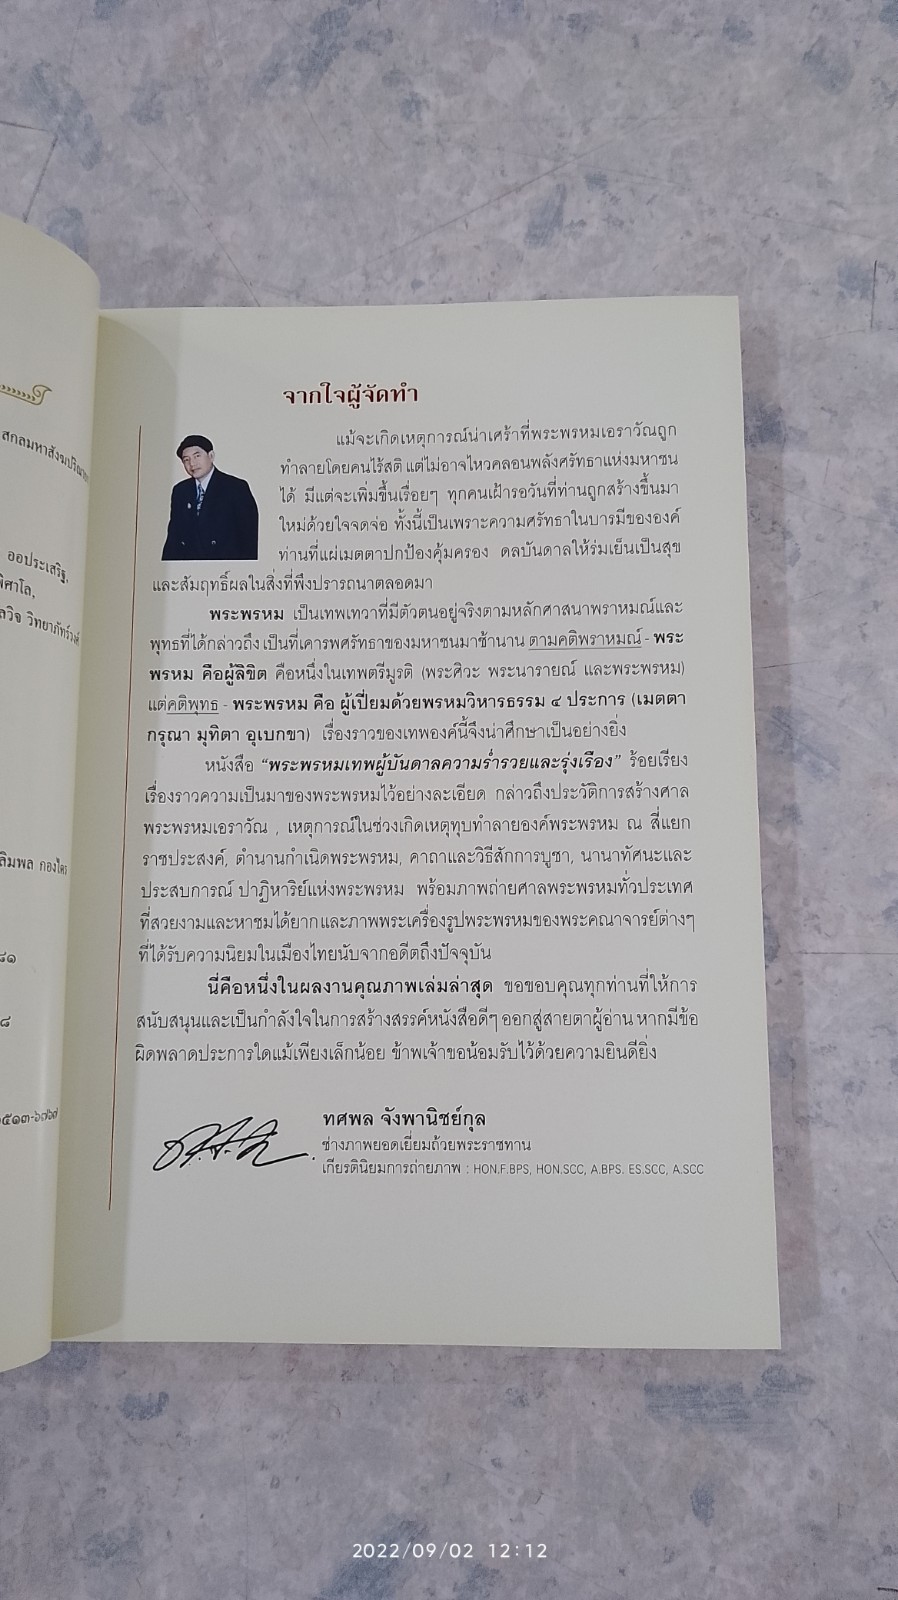 สกลมหาสังฆปริณายก
ออประเสริฐ,
พิศาโล,
ลวิจ วิทยาภัทร์วงศ์
ลิมพล กองไตร
๘๑
๘
๕๑๓-๖๗๖๗
จากใจผู้จัดทำ
แม้จะเกิดเหตุการณ์น่าเศร้าที่พระพรหมเอราวัณถูก
ทำลายโดยคนไร้สติ แต่ไม่อาจไหวคลอนพลังศรัทธาแห่งมหาชน
ได้ มีแต่จะเพิ่มขึ้นเรื่อยๆ ทุกคนเฝ้ารอวันที่ท่านถูกสร้างขึ้นมา
ใหม่ด้วยใจจดจ่อ ทั้งนี้เป็นเพราะความศรัทธาในบารมีขององค์
ท่านที่แผ่เมตตาปกป้องคุ้มครอง ดลบันดาลให้ร่มเย็นเป็นสุข
และสัมฤทธิ์ผลในสิ่งที่พึงปรารถนาตลอดมา
พระพรหม เป็นเทพเทวาที่มีตัวตนอยู่จริงตามหลักศาสนาพราหมณ์และ
พุทธที่ได้กล่าวถึง เป็นที่เคารพศรัทธาของมหาชนมาช้านาน ตามคติพราหมณ์ - พระ
พรหม คือผู้ลิขิต คือหนึ่งในเทพตรีมูรติ (พระศิวะ พระนารายณ์ และพระพรหม)
แต่คติพุทธ - พระพรหม คือ ผู้เปี่ยมด้วยพรหมวิหารธรรม ๔ ประการ (เมตตา
กรุณา มุทิตา อุเบกขา) เรื่องราวของเทพองค์นี้จึงน่าศึกษาเป็นอย่างยิ่ง
หนังสือ "พระพรหมเทพผู้บันดาลความร่ำรวยและรุ่งเรือง" ร้อยเรียง
เรื่องราวความเป็นมาของพระพรหมไว้อย่างละเอียด กล่าวถึงประวัติการสร้างศาล
พระพรหมเอราวัณ , เหตุการณ์ในช่วงเกิดเหตุทุบทำลายองค์พระพรหม ณ สี่แยก
ราชประสงค์, ตำนานกำเนิดพระพรหม, คาถาและวิธีสักการบูชา, นานาทัศนะและ
ประสบการณ์ ปาฏิหาริย์แห่งพระพรหม พร้อมภาพถ่ายศาลพระพรหมทั่วประเทศ
ที่สวยงามและหาชมได้ยากและภาพพระเครื่องรูปพระพรหมของพระคณาจารย์ต่างๆ
ที่ได้รับความนิยมในเมืองไทยนับจากอดีตถึงปัจจุบัน
นี่คือหนึ่งในผลงานคุณภาพเล่มล่าสุด ขอขอบคุณทุกท่านที่ให้การ
สนับสนุนและเป็นกำลังใจในการสร้างสรรค์หนังสือดีๆ ออกสู่สายตาผู้อ่าน หากมีข้อ
ผิดพลาดประการใดแม้เพียงเล็กน้อย ข้าพเจ้าขอน้อมรับไว้ด้วยความยินดียิ่ง
ทศพล จังพานิชย์กุล
ช่างภาพยอดเยี่ยมถ้วยพระราชทาน
เกียรตินิยมการถ่ายภาพ : HON.F.BPS, HON.SCC, A.BPS. ES.SCC, A.SCC
2022/09/02 12:12